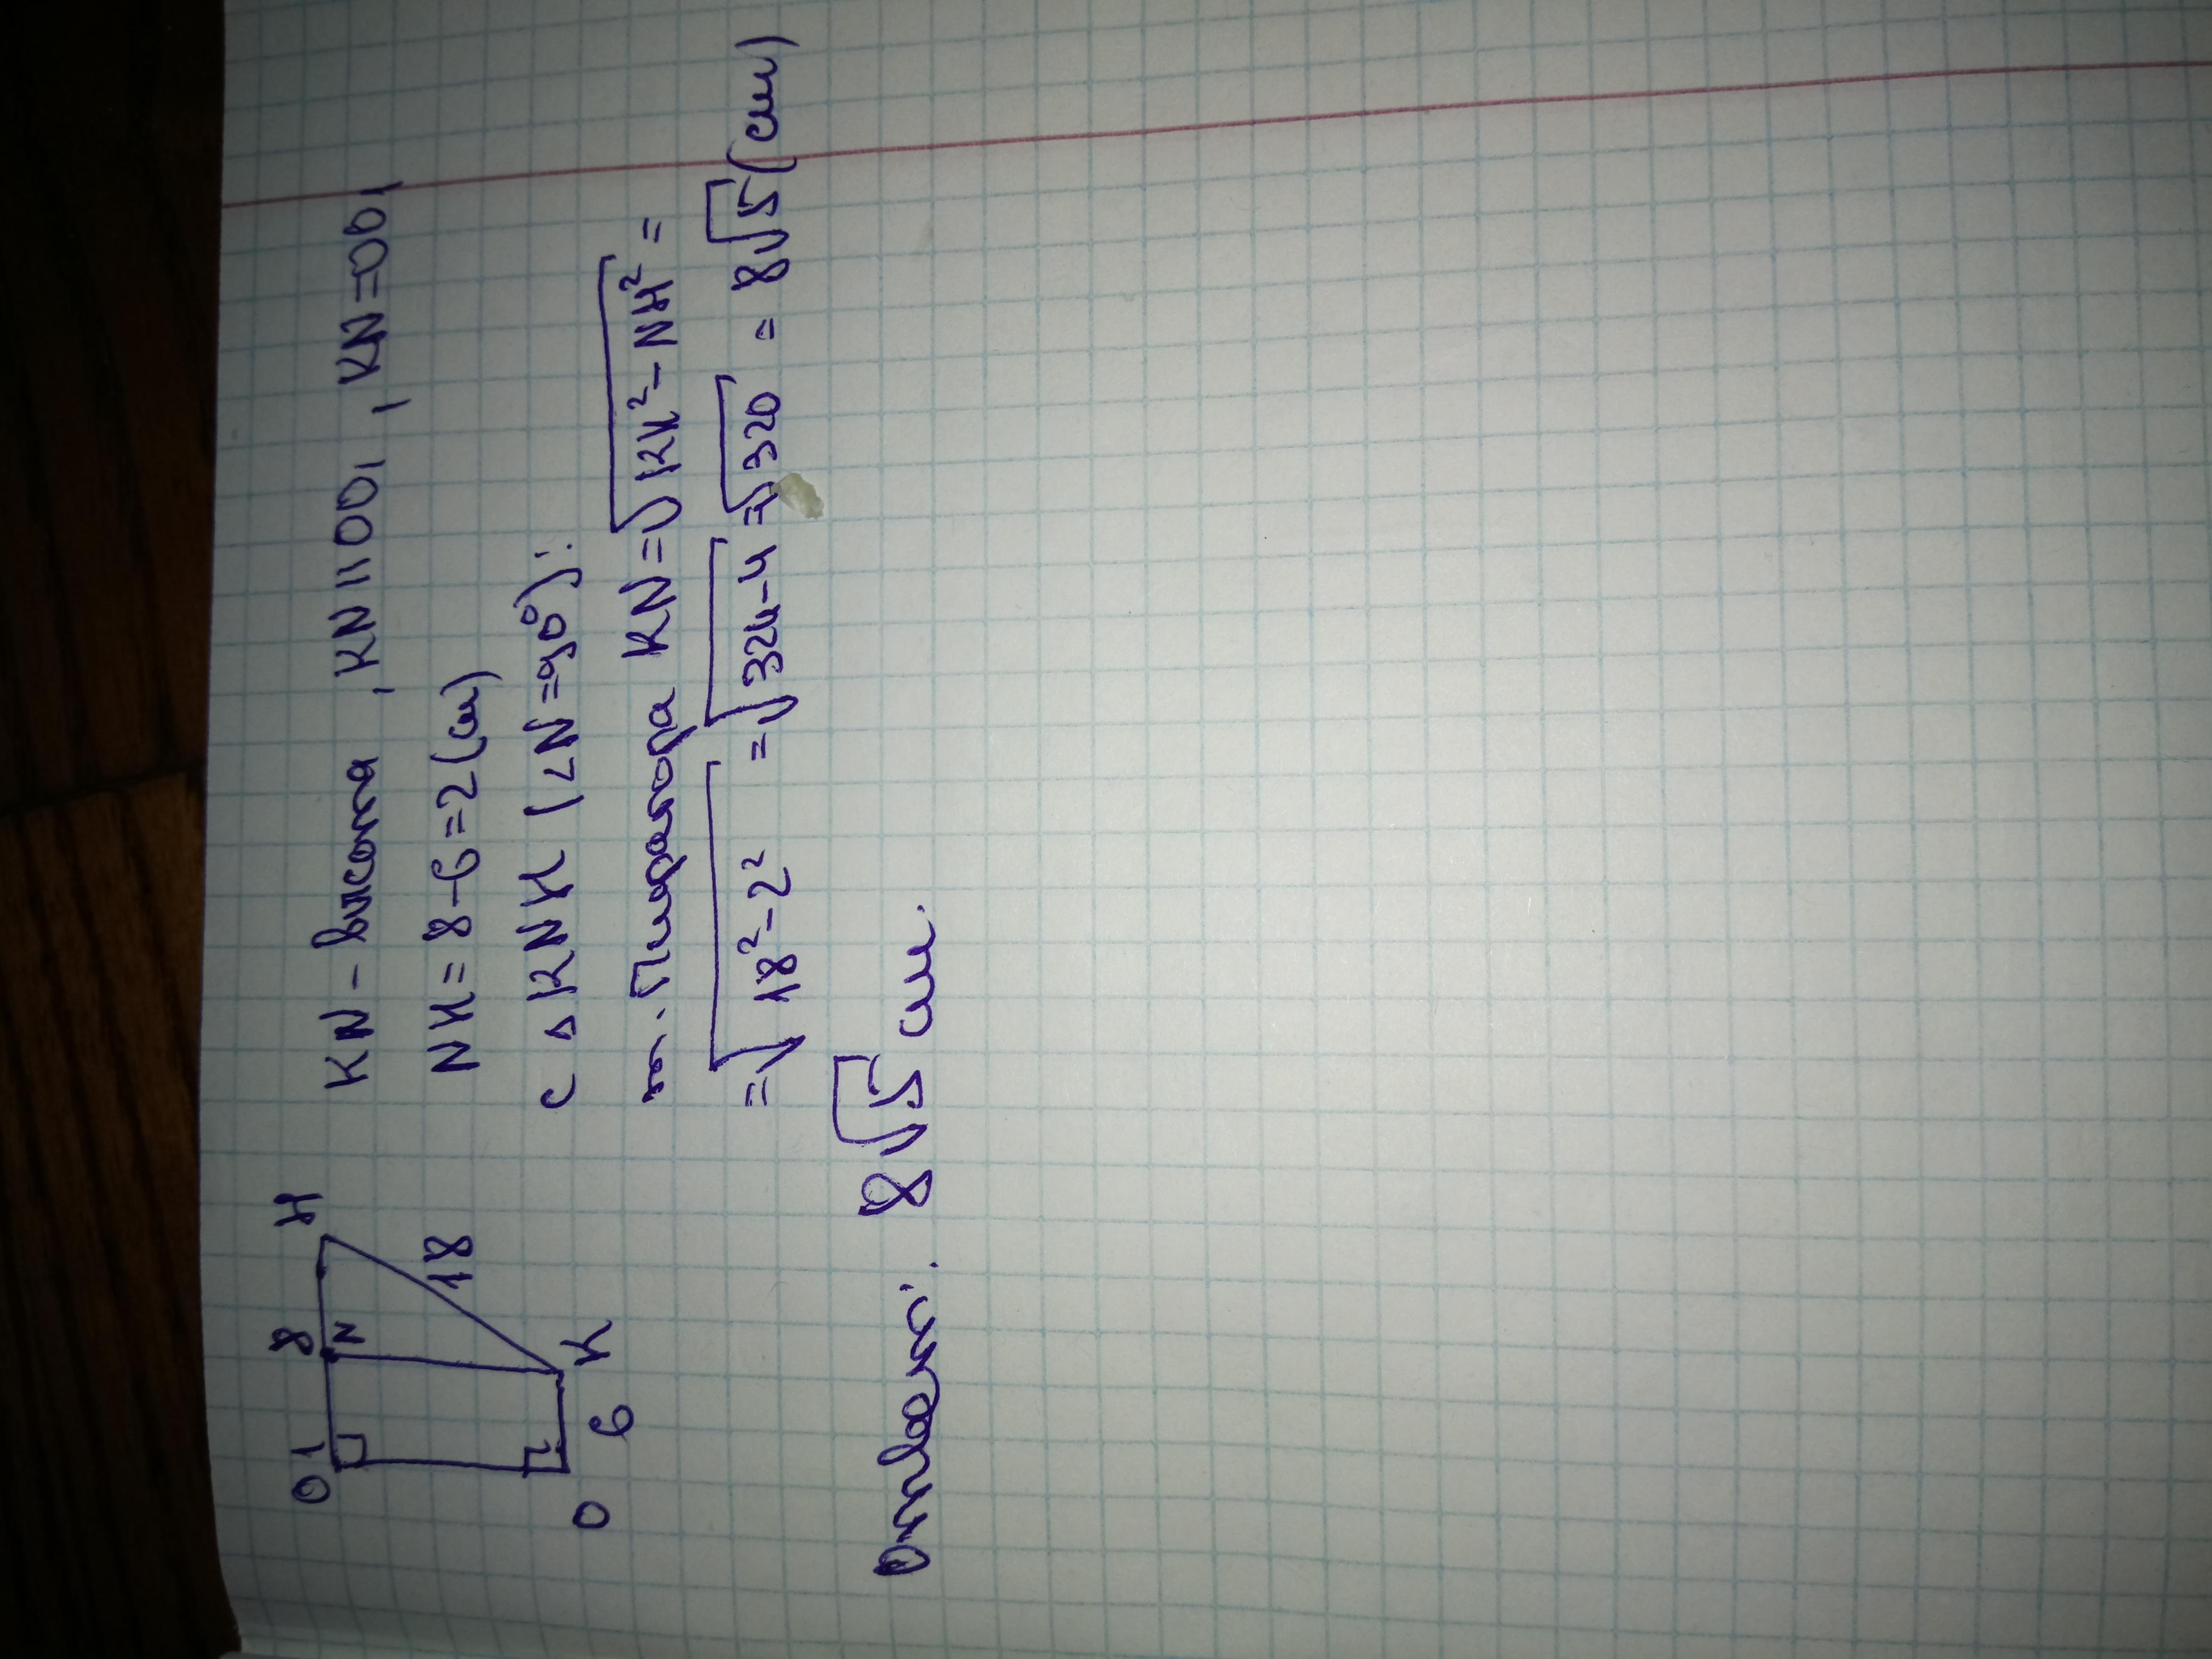 O1 8 H
N
18
O 6 K
KN - висота, KN || OO1, KN = OO1
NH = 8 - 6 = 2 (см)
С △ KNH (∠N = 90°):
т. Пифагора KN = √KH² - NH² =
= √18² - 2² = √324 - 4 = √320 = 8√5 (см)
Ответ: 8√5 см.